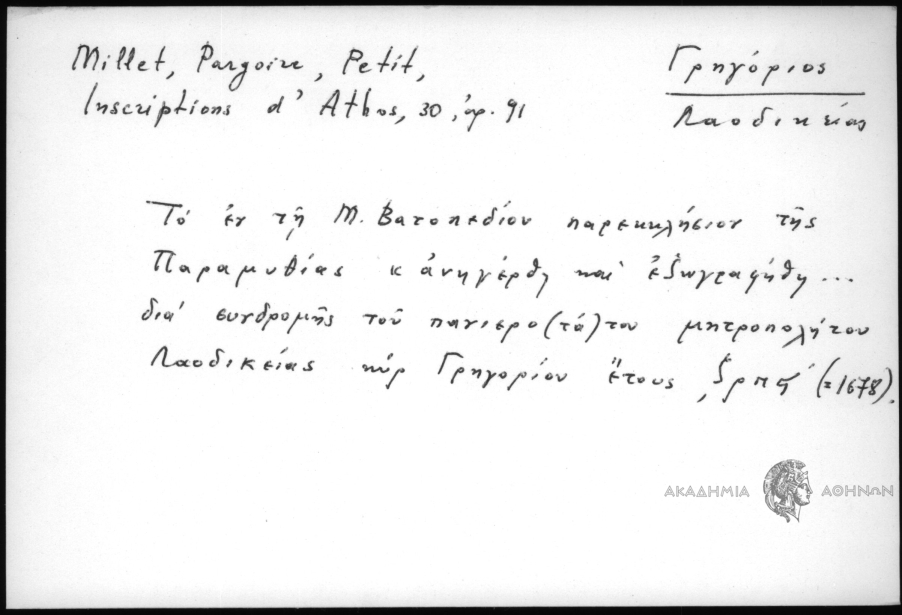 Millet, Pargoire, Petit,
Inscriptions d' Athos, 30, ἀρ. 91
Γρηγόριος
Λαοδικείας
Τό ἐν τῇ Μ. Βατοπεδίου παρεκκλήσιον τῆς
Παραμυθίας κ ἀνηγέρθη καί ἐζωγραφήθη ...
διά συνδρομῆς τοῦ πανιερο(τά)του μητροπολήτου
Λαοδικείας κύρ Γρηγορίου ἔτους ,ζρπϛ´ (=1678).
ΑΚΑΔΗΜΙΑ ΑΘΗΝΩΝ